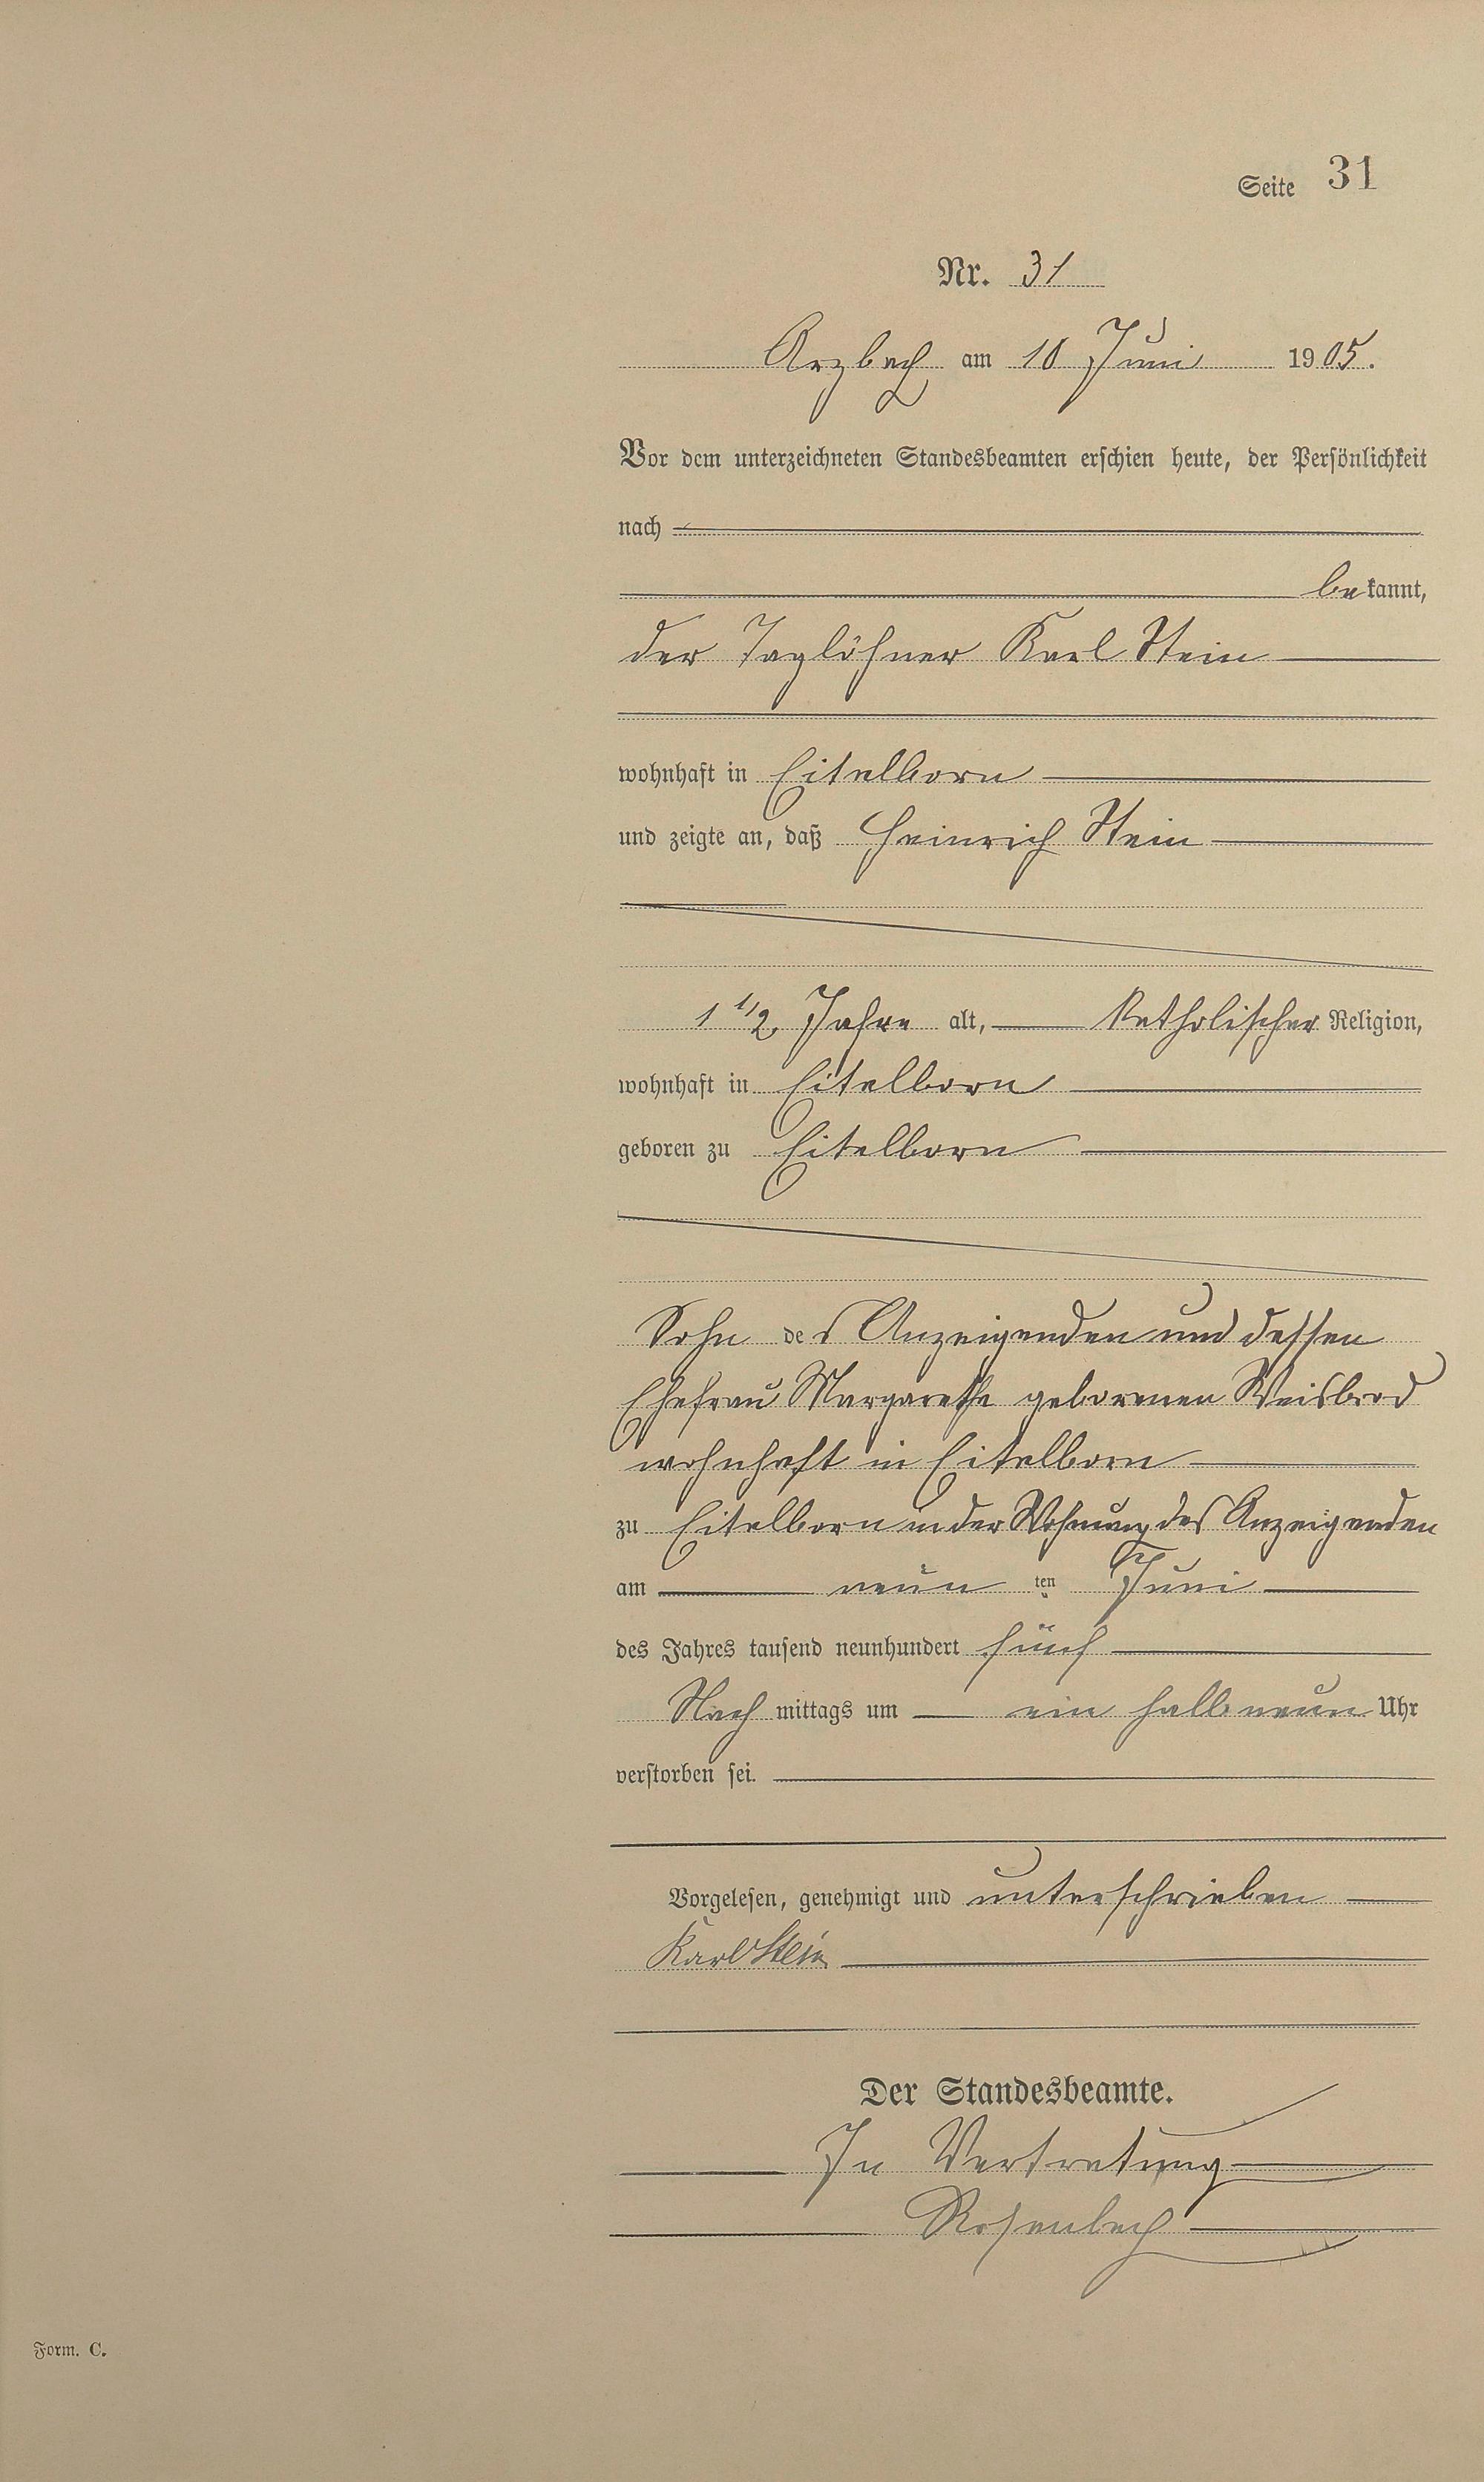 Seite 31
Nr. 31
Arzbach am 10 Juni 1905.
Vor dem unterzeichneten Standesbeamten erschien heute, der Persönlichkeit
nach
bekannt,
der Taglöhner Karl Stein
wohnhaft in Eitelborn
und zeigte an, daß Heinrich Stein
1 1/2 Jahre alt, katholischer Religion,
wohnhaft in Eitelborn
geboren zu Eitelborn
Sohn des Anzeigenden und dessen
Ehefrau Margarethe geborenen Weisbrod
wohnhaft in Eitelborn
zu Eitelborn in der Wohnung des Anzeigenden
am neun ten Juni
des Jahres tausend neunhundert fünf
Nach mittags um ein halb neun Uhr
verstorben sei.
Vorgelesen, genehmigt und unterschrieben
Karl Stein
Der Standesbeamte.
In Vertretung
Rosenbach
Form. C.